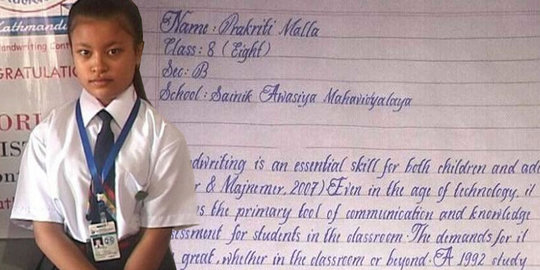 Kathmandu
Handwriting Cont
GRATULATI
Name : Prakriti Malla
Class : 8 (Eight)
Sec : B
School : Sainik Awasiya Mahavidyalaya
ndwriting is an essential skill for both children and adu
r & Majnemer, 2007) Even in the age of technology, it
s the primary tool of communication and knowledge
essment for students in the classroom. The demands for it
great, whether in the classroom or beyond. A 1992 study